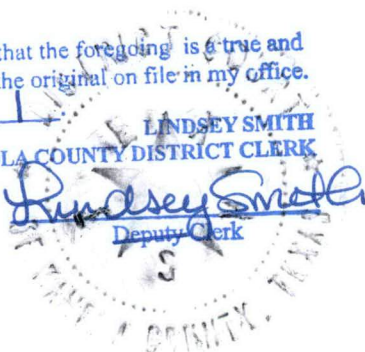 that the foregoing is a true and
the original on file in my office.
LINDSEY SMITH
LA COUNTY DISTRICT CLERK
Lindsey Smith
Deputy Clerk